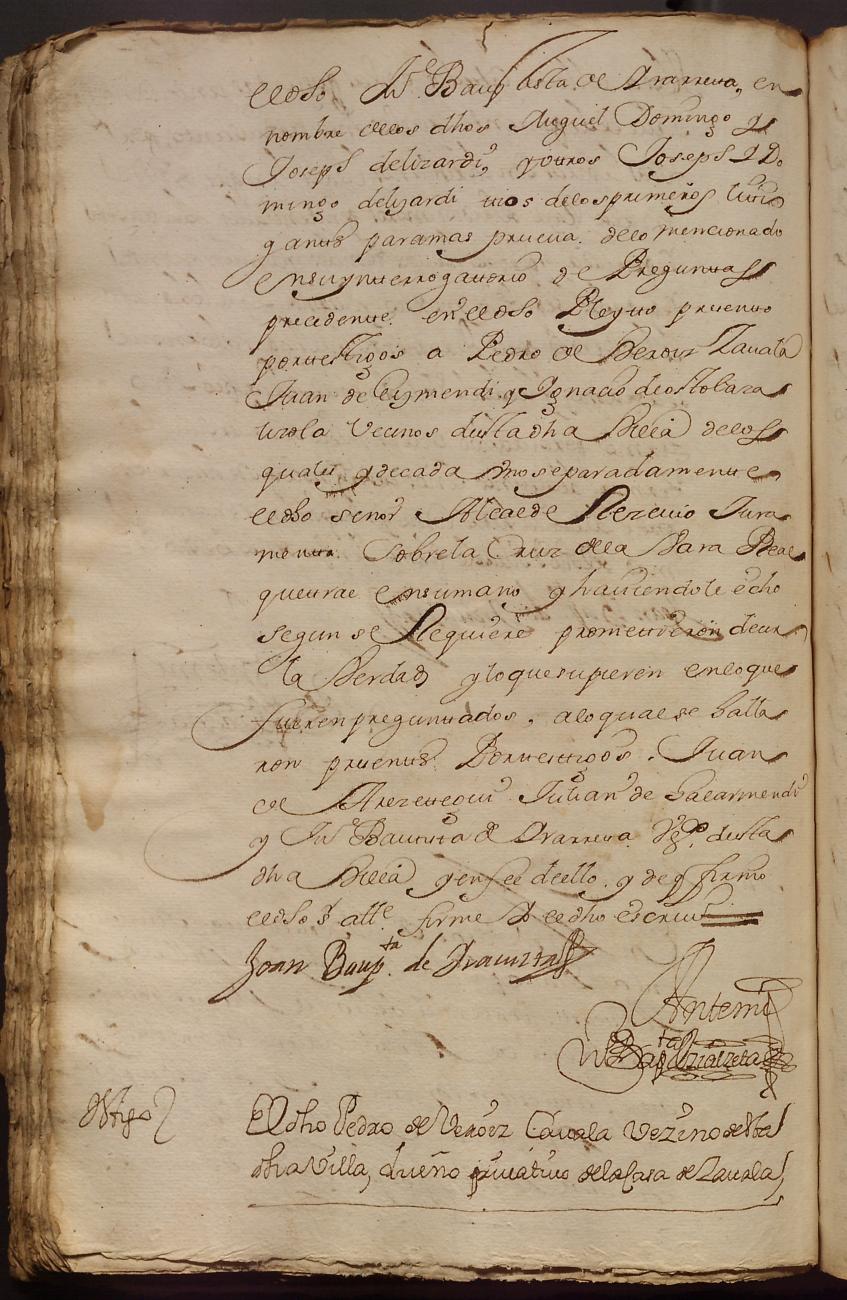 el dho Jn.º Baup tista de Ararreta, en
nombre de los dhos Miguel Domingo y
Joseph de lizardi, y otros Joseph I Do
mingo de lizardi tios de los primeros liti
gantes para mas prueva de lo mencionado
en su ynterrogatorio de Preguntas
precedente en el dho Pleyto presento
por testigos a Pedro de Veroiz Zavala
Juan de Eymendi y Ignacio de ostolaza
Vecinos desta dha Villa de los
quales y de cada Uno separadamente
el dho señor Alcalde Rezevio Jura
mento Sobre la Cruz de la Vara Real
que trae en su mano y haviendole echo
segun se Requiere prometieron decir
la Verdad y lo que supieren en lo que
fueren preguntados, a lo qual se halla
ron presentes Por testigos Juan
de Arezetegui Julian de
y Jn.º Bautista de Ararreta Vz.os desta
dha Villa y en fee de ello y de q firmo
el dho s.r all.e firme Yo el dho escriv.º
Joan Baup.ta de
Ante mi
Bap.ta
Testigo
El dho Pedro de Veroiz Çavala Vezino de esta
dha Villa, dueño de la Casa de Zavala,